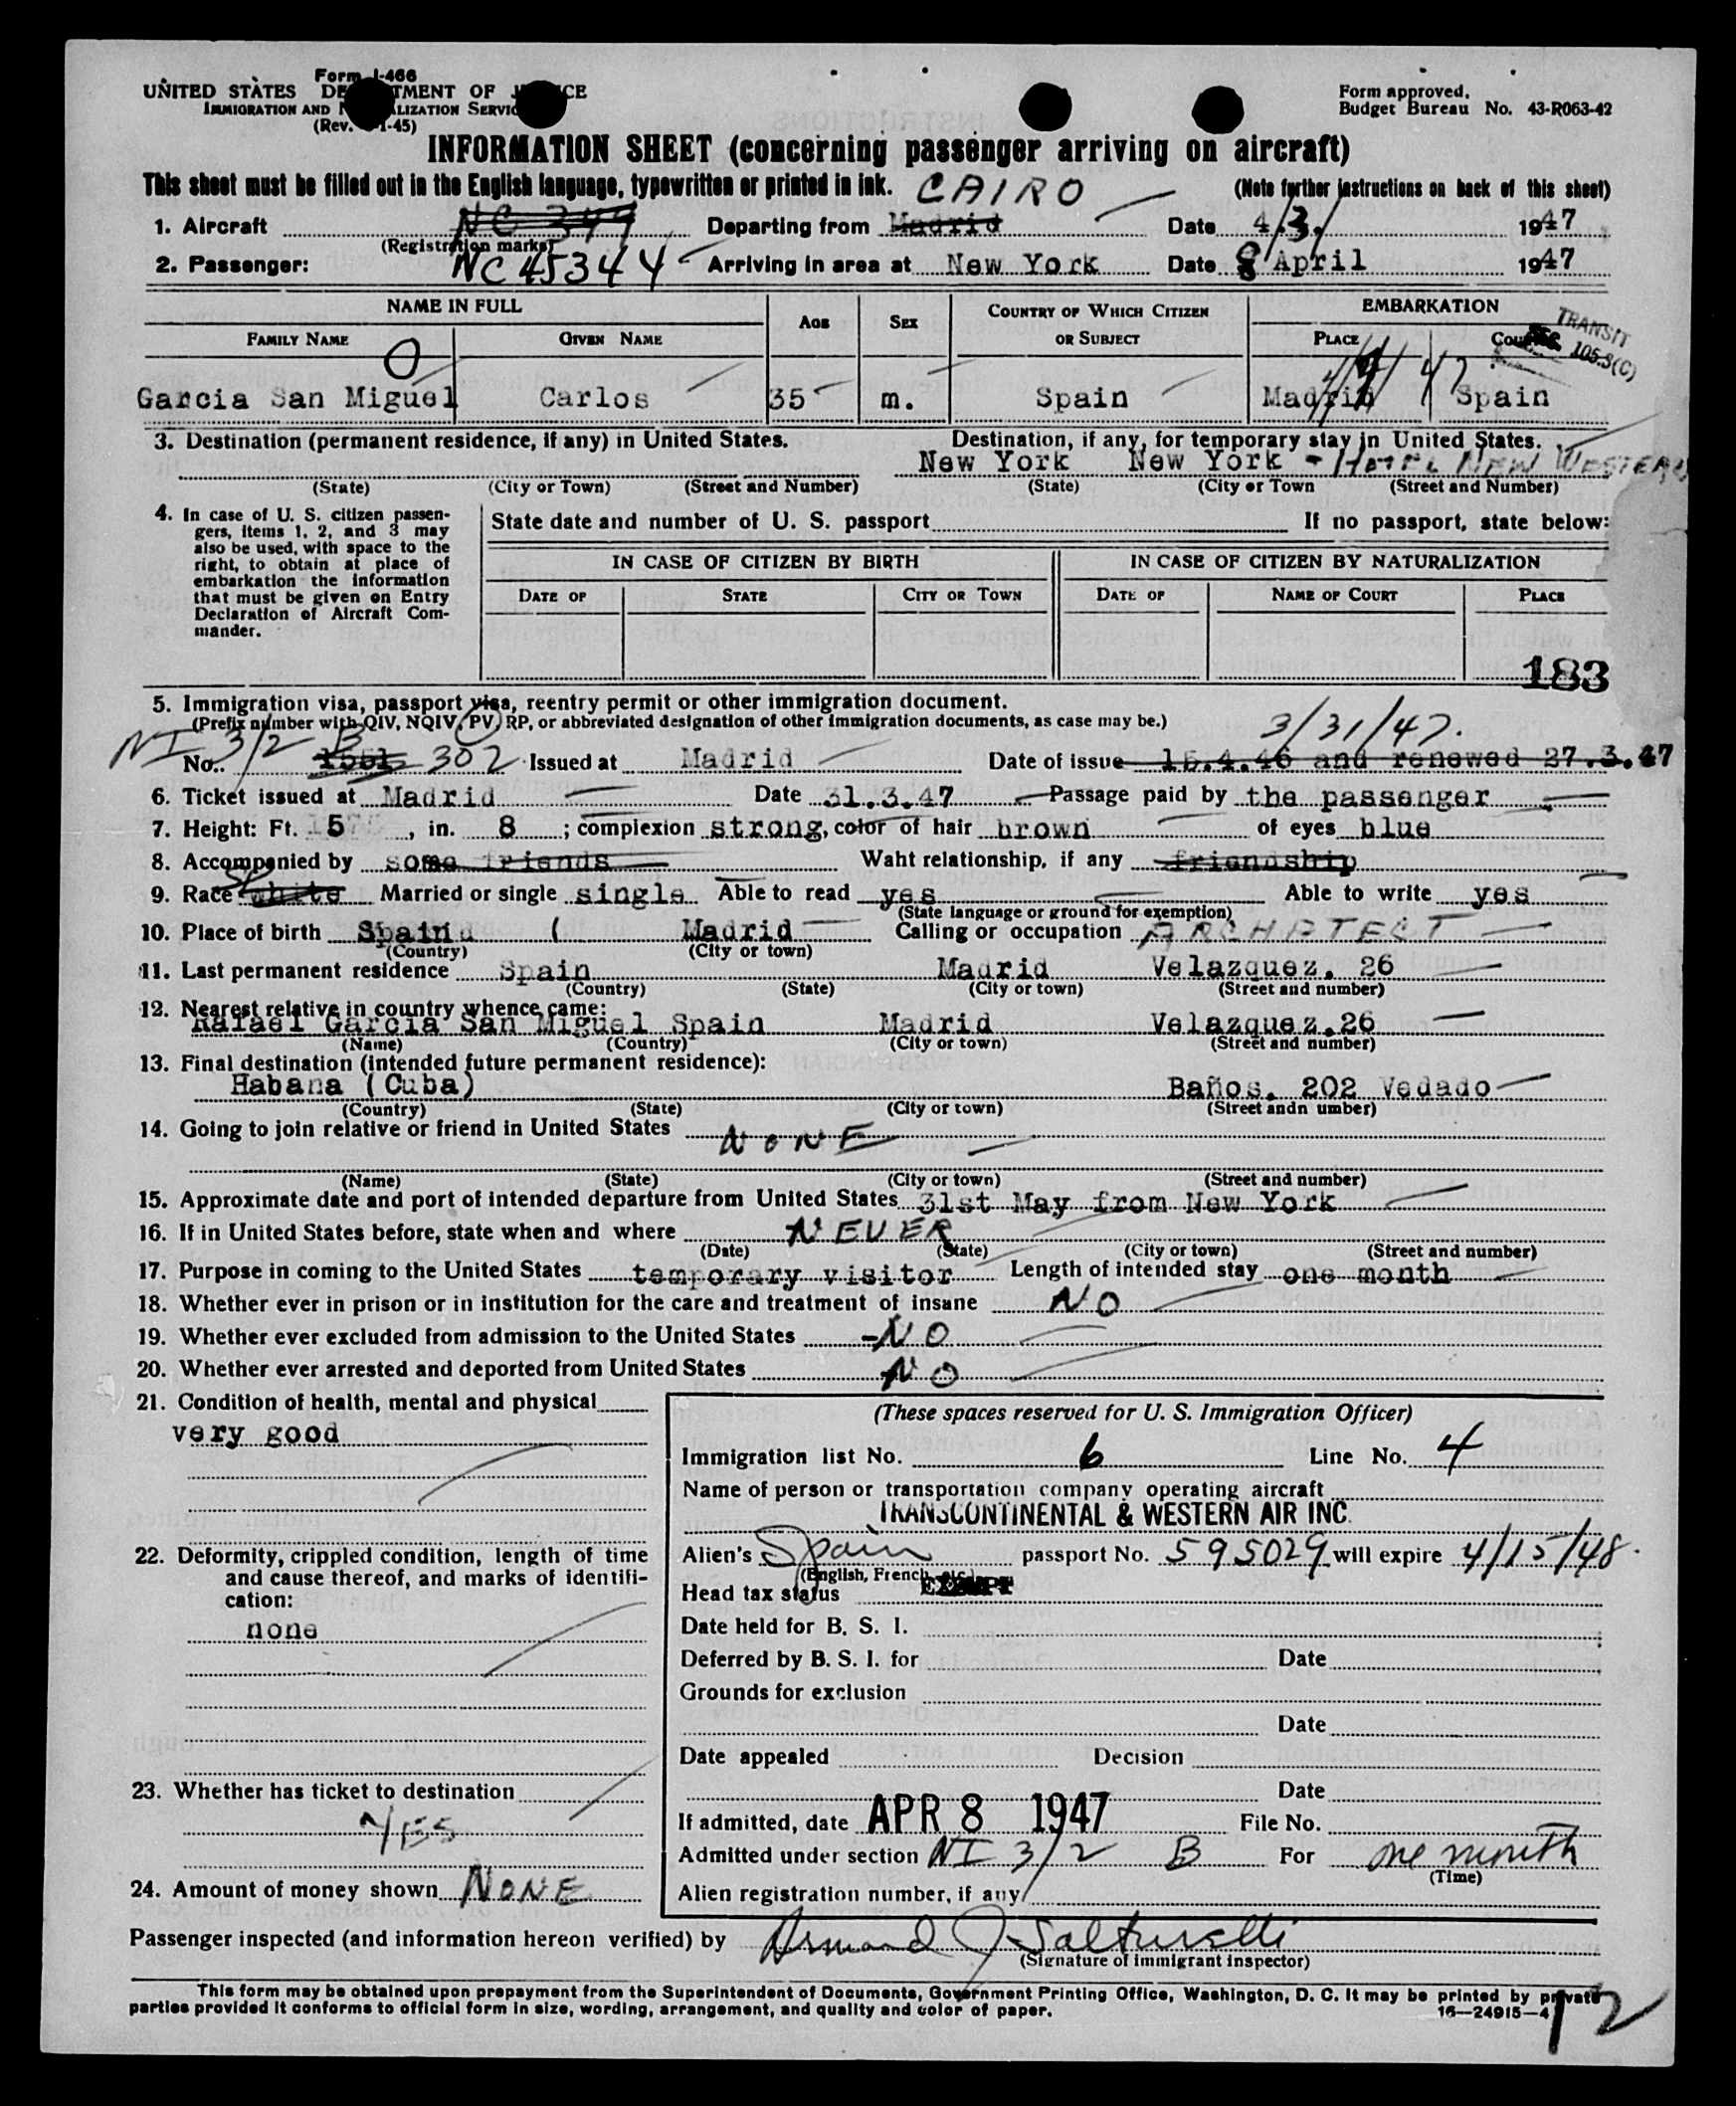 Form I-466
UNITED STATES DEPARTMENT OF JUSTICE
IMMIGRATION AND NATURALIZATION SERVICE
(Rev. -1-45)
Form approved.
Budget Bureau No. 43-R063-42
INFORMATION SHEET (concerning passenger arriving on aircraft)
This sheet must be filled out in the English language, typewritten or printed in ink. CAIRO (Note further instructions on back of this sheet)
1. Aircraft NC 349 Departing from Madrid Date 4/3/ 1947
(Registration marks)
2. Passenger: NC 45344 Arriving in area at New York Date 8 April 1947
NAME IN FULL AGE SEX COUNTRY OF WHICH CITIZEN OR SUBJECT EMBARKATION
FAMILY NAME GIVEN NAME PLACE COUNTRY
TRANSIT
105.3(C)
O 4/4/47
Garcia San Miguel Carlos 35 m. Spain Madrid Spain
3. Destination (permanent residence, if any) in United States. Destination, if any, for temporary stay in United States.
New York New York - HOTEL NEW WESTERN
(State) (City or Town) (Street and Number) (State) (City or Town (Street and Number)
4. In case of U. S. citizen passen-
gers, items 1, 2, and 3 may
also be used, with space to the
right, to obtain at place of
embarkation the information
that must be given on Entry
Declaration of Aircraft Com-
mander.
State date and number of U. S. passport If no passport, state below:
IN CASE OF CITIZEN BY BIRTH IN CASE OF CITIZEN BY NATURALIZATION
DATE OF STATE CITY OR TOWN DATE OF NAME OF COURT PLACE
183
5. Immigration visa, passport visa, reentry permit or other immigration document.
(Prefix number with QIV, NQIV, PV, RP, or abbreviated designation of other immigration documents, as case may be.)
NI 3/2 B 3/31/47.
No.. 1551 302 Issued at Madrid Date of issue 15.4.46 and renewed 27.3.47
6. Ticket issued at Madrid Date 31.3.47 Passage paid by the passenger
7. Height: Ft. 5, in. 8; complexion strong, color of hair brown of eyes blue
8. Accompanied by some friends Waht relationship, if any friendship
9. Race white SP Married or single single Able to read yes Able to write yes
(State language or ground for exemption)
10. Place of birth Spain ( Madrid Calling or occupation ARCHITECT
(Country) (City or town)
11. Last permanent residence Spain Madrid Velazquez. 26
(Country) (State) (City or town) (Street and number)
12. Nearest relative in country whence came:
Rafael Garcia San Miguel Spain Madrid Velazquez.26
(Name) (Country) (City or town) (Street and number)
13. Final destination (intended future permanent residence):
Habana (Cuba) Baños. 202 Vedado
(Country) (State) (City or town) (Street andn umber)
14. Going to join relative or friend in United States NONE
(Name) (State) (City or town) (Street and number)
15. Approximate date and port of intended departure from United States 31st May from New York
16. If in United States before, state when and where NEVER
(Date) (State) (City or town) (Street and number)
17. Purpose in coming to the United States temporary visitor Length of intended stay one month
18. Whether ever in prison or in institution for the care and treatment of insane NO
19. Whether ever excluded from admission to the United States -NO
20. Whether ever arrested and deported from United States NO
21. Condition of health, mental and physical
very good
22. Deformity, crippled condition, length of time
and cause thereof, and marks of identifi-
cation:
none
23. Whether has ticket to destination
YES
24. Amount of money shown NONE
(These spaces reserved for U. S. Immigration Officer)
Immigration list No. 6 Line No. 4
Name of person or transportation company operating aircraft
TRANSCONTINENTAL & WESTERN AIR INC
Alien's Spain passport No. 595029 will expire 4/15/48.
(English, French, etc.)
Head tax status EXEMPT
Date held for B. S. I.
Deferred by B. S. I. for Date
Grounds for exclusion
Date
Date appealed Decision
Date
If admitted, date APR 8 1947 File No.
Admitted under section NI 3/2 B For one month
(Time)
Alien registration number, if any
Passenger inspected (and information hereon verified) by Armand J Salturelli
(Signature of immigrant inspector)
This form may be obtained upon prepayment from the Superintendent of Documents, Government Printing Office, Washington, D. C. It may be printed by private
parties provided it conforms to official form in size, wording, arrangement, and quality and color of paper. 16—24915-4
12